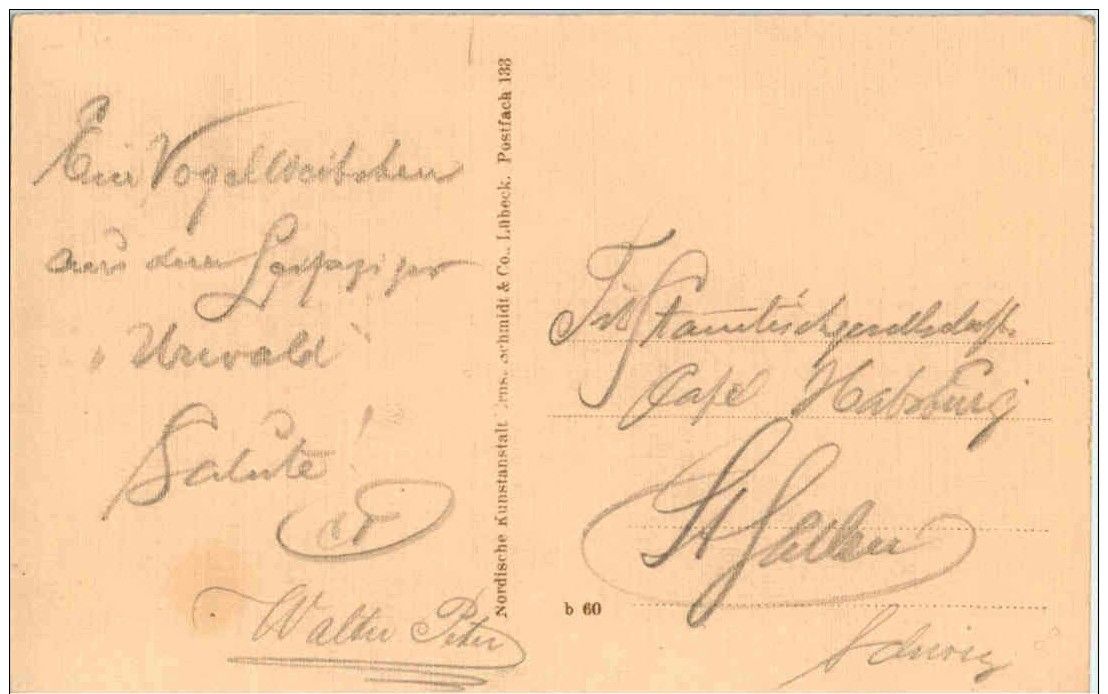 Ein Vogelweibchen
aus dem Leipziger
"Urwald"
Salute!
Walter Peter
Nordische Kunstanstalt Ernst Schmidt & Co., Lübeck. Postfach 133
Tit. Stamtischgesellschaft
Café Habsburg
St Gallen
b 60
Schweiz